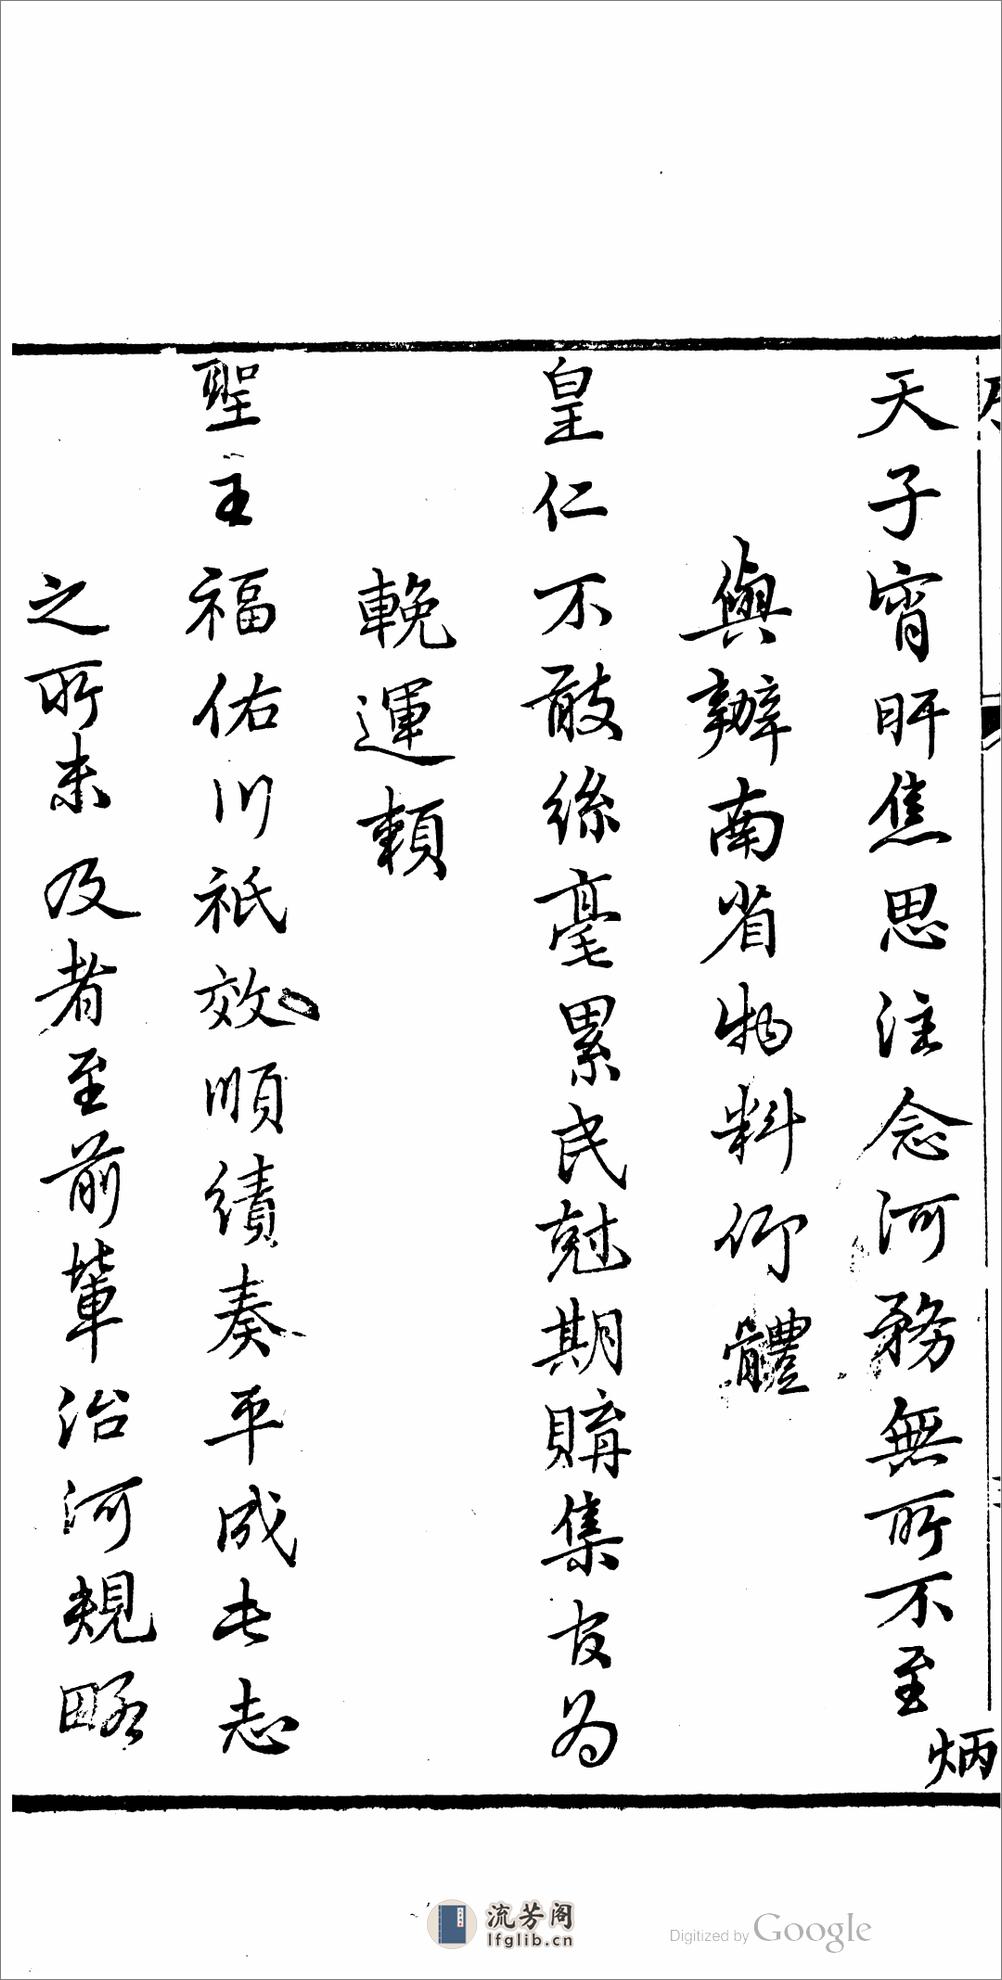 天子宵旰焦思注念河務無所不至炳
與辦南省物料仰體
皇仁不敢絲毫累民尅期購集友为
輓運賴
聖主福佑川祇效順績奏平成此志
之所未及者至前輩治河規略
流芳阁
lfglib.cn
Digitized by Google